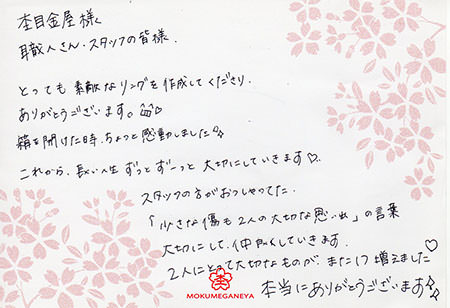 杢目金屋様
職人さん、スタッフの皆様
とっても素敵なリングを作成してくださり
ありがとうございます。
箱を開けた時、ちょっと感動しました
これから、長い人生ずっとずーっと大切にしていきます♡
スタッフの方がおっしゃってた、
「小さな傷も2人の大切な思い出」の言葉
大切にして、仲良くしていきます。
2人にとって大切なものが、また1つ増えました♡
本当にありがとうございます
MOKUMEGANEYA